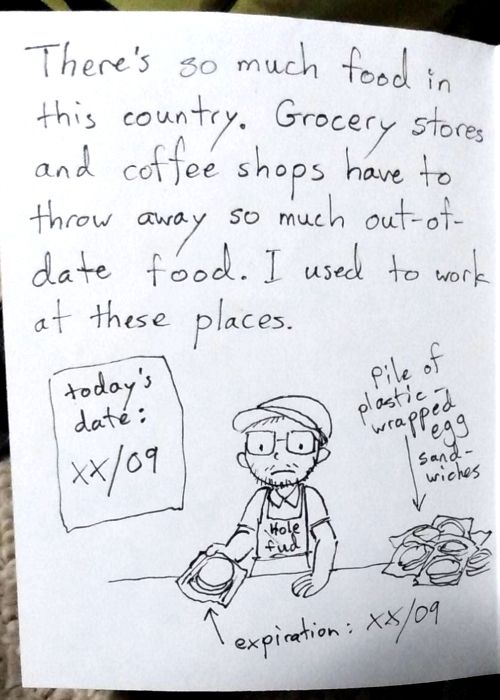 There's so much food in
this country. Grocery stores
and coffee shops have to
throw away so much out-of-
date food. I used to work
at these places.
today's
date:
XX/09
Pile of
plastic-
wrapped
egg
sand-
wiches
Hole
fud
expiration: XX/09